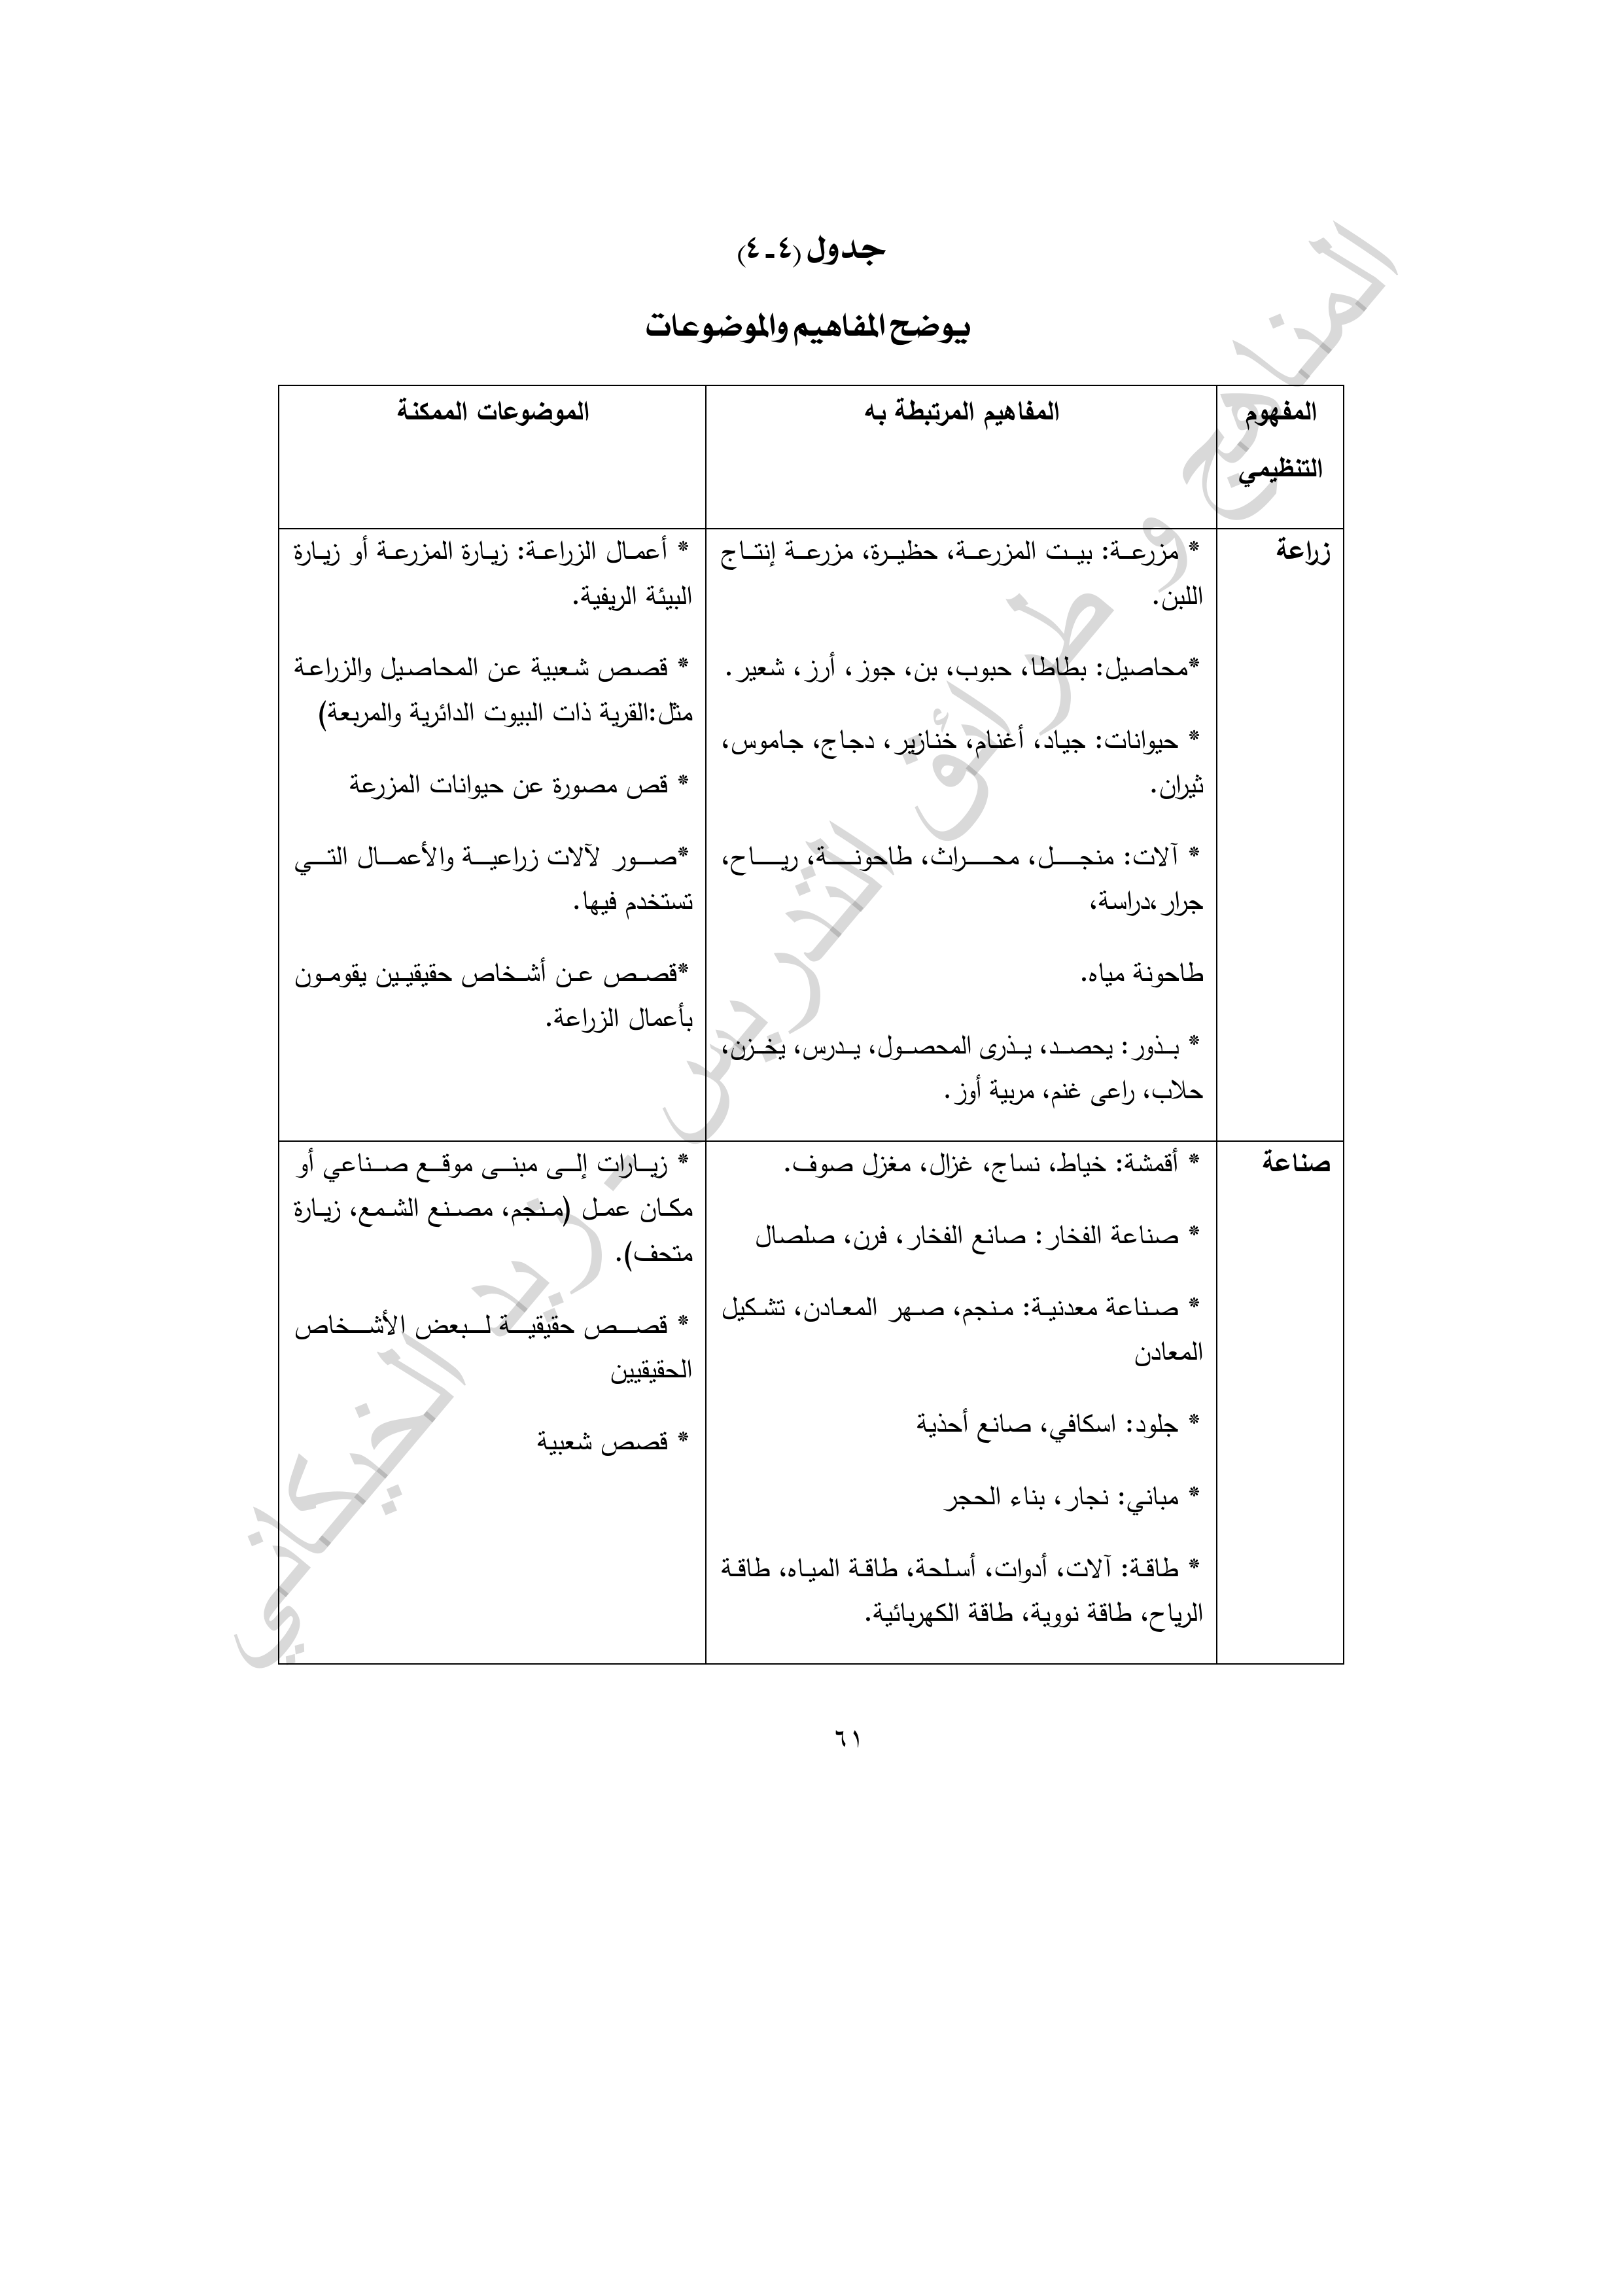 جدول (٤-٤)
يوضح المفاهيم والموضوعات
المفهوم
التنظيمي
المفاهيم المرتبطة به
الموضوعات الممكنة
زراعة
* مزرعة: بيت المزرعة، حظيرة، مزرعة إنتاج
اللبن.
*محاصيل: بطاطا، حبوب، بن، جوز، أرز، شعير.
* حيوانات: جياد، أغنام، خنازير، دجاج، جاموس،
ثيران.
* آلات: منجل، محراث، طاحونة، رياح،
جرار،دراسة،
طاحونة مياه.
* بذور: يحصد، يذرى المحصول، يدرس، يخزن،
حلاب، راعى غنم، مربية أوز.
* أعمال الزراعة: زيارة المزرعة أو زيارة
البيئة الريفية.
* قصص شعبية عن المحاصيل والزراعة
مثل:القرية ذات البيوت الدائرية والمربعة)
* قص مصورة عن حيوانات المزرعة
*صور لآلات زراعية والأعمال التي
تستخدم فيها.
*قصص عن أشخاص حقيقيين يقومون
بأعمال الزراعة.
صناعة
* أقمشة: خياط، نساج، غزال، مغزل صوف.
* صناعة الفخار: صانع الفخار، فرن، صلصال
* صناعة معدنية: منجم، صهر المعادن، تشكيل
المعادن
* جلود: اسكافي، صانع أحذية
* مباني: نجار، بناء الحجر
* طاقة: آلات، أدوات، أسلحة، طاقة المياه، طاقة
الرياح، طاقة نووية، طاقة الكهربائية.
* زيارات إلى مبنى موقع صناعي أو
مكان عمل (منجم، مصنع الشمع، زيارة
متحف).
* قصص حقيقية لبعض الأشخاص
الحقيقيين
* قصص شعبية
المناهج و طرائق التدريس - زيد الخيكاني
٦١